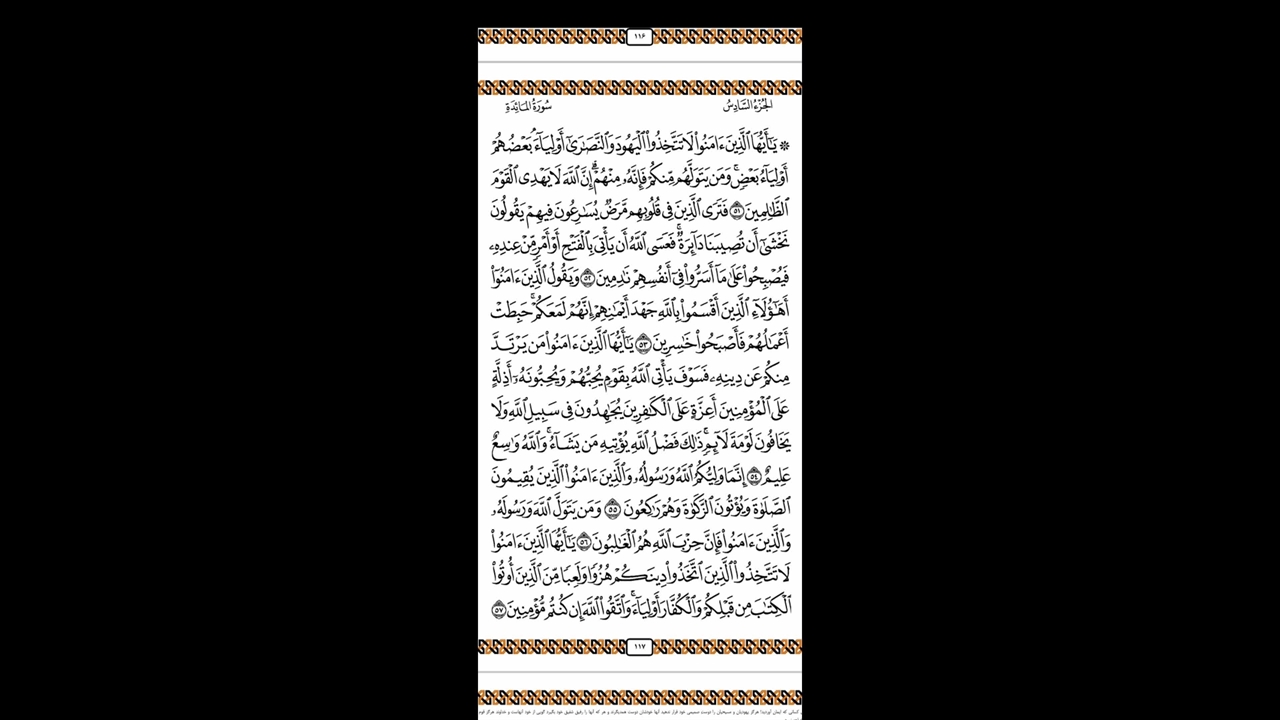 ١١۶
الجزء السادس
سورة المائدة
۞ يَٰٓأَيُّهَا ٱلَّذِينَ ءَامَنُوا۟ لَا تَتَّخِذُوا۟ ٱلْيَهُودَ وَٱلنَّصَٰرَىٰٓ أَوْلِيَآءَ ۘ بَعْضُهُمْ
أَوْلِيَآءُ بَعْضٍ ۚ وَمَن يَتَوَلَّهُم مِّنكُمْ فَإِنَّهُۥ مِنْهُمْ ۗ إِنَّ ٱللَّهَ لَا يَهْدِى ٱلْقَوْمَ
ٱلظَّٰلِمِينَ ٥١ فَتَرَى ٱلَّذِينَ فِى قُلُوبِهِم مَّرَضٌ يُسَٰرِعُونَ فِيهِمْ يَقُولُونَ
نَخْشَىٰٓ أَن تُصِيبَنَا دَآئِرَةٌ ۚ فَعَسَى ٱللَّهُ أَن يَأْتِىَ بِٱلْفَتْحِ أَوْ أَمْرٍ مِّنْ عِندِهِۦ
فَيُصْبِحُوا۟ عَلَىٰ مَآ أَسَرُّوا۟ فِىٓ أَنفُسِهِمْ نَٰدِمِينَ ٥٢ وَيَقُولُ ٱلَّذِينَ ءَامَنُوٓا۟
أَهَٰٓؤُلَآءِ ٱلَّذِينَ أَقْسَمُوا۟ بِٱللَّهِ جَهْدَ أَيْمَٰنِهِمْ إِنَّهُمْ لَمَعَكُمْ ۚ حَبِطَتْ
أَعْمَٰلُهُمْ فَأَصْبَحُوا۟ خَٰسِرِينَ ٥٣ يَٰٓأَيُّهَا ٱلَّذِينَ ءَامَنُوا۟ مَن يَرْتَدَّ
مِنكُمْ عَن دِينِهِۦ فَسَوْفَ يَأْتِى ٱللَّهُ بِقَوْمٍ يُحِبُّهُمْ وَيُحِبُّونَهُۥٓ أَذِلَّةٍ
عَلَى ٱلْمُؤْمِنِينَ أَعِزَّةٍ عَلَى ٱلْكَٰفِرِينَ يُجَٰهِدُونَ فِى سَبِيلِ ٱللَّهِ وَلَا
يَخَافُونَ لَوْمَةَ لَآئِمٍ ۚ ذَٰلِكَ فَضْلُ ٱللَّهِ يُؤْتِيهِ مَن يَشَآءُ ۚ وَٱللَّهُ وَٰسِعٌ
عَلِيمٌ ٥٤ إِنَّمَا وَلِيُّكُمُ ٱللَّهُ وَرَسُولُهُۥ وَٱلَّذِينَ ءَامَنُوا۟ ٱلَّذِينَ يُقِيمُونَ
ٱلصَّلَوٰةَ وَيُؤْتُونَ ٱلزَّكَوٰةَ وَهُمْ رَٰكِعُونَ ٥٥ وَمَن يَتَوَلَّ ٱللَّهَ وَرَسُولَهُۥ
وَٱلَّذِينَ ءَامَنُوا۟ فَإِنَّ حِزْبَ ٱللَّهِ هُمُ ٱلْغَٰلِبُونَ ٥٦ يَٰٓأَيُّهَا ٱلَّذِينَ ءَامَنُوا۟
لَا تَتَّخِذُوا۟ ٱلَّذِينَ ٱتَّخَذُوا۟ دِينَكُمْ هُزُوًا وَلَعِبًا مِّنَ ٱلَّذِينَ أُوتُوا۟
ٱلْكِتَٰبَ مِن قَبْلِكُمْ وَٱلْكُفَّارَ أَوْلِيَآءَ ۚ وَٱتَّقُوا۟ ٱللَّهَ إِن كُنتُم مُّؤْمِنِينَ ٥٧
١١٧